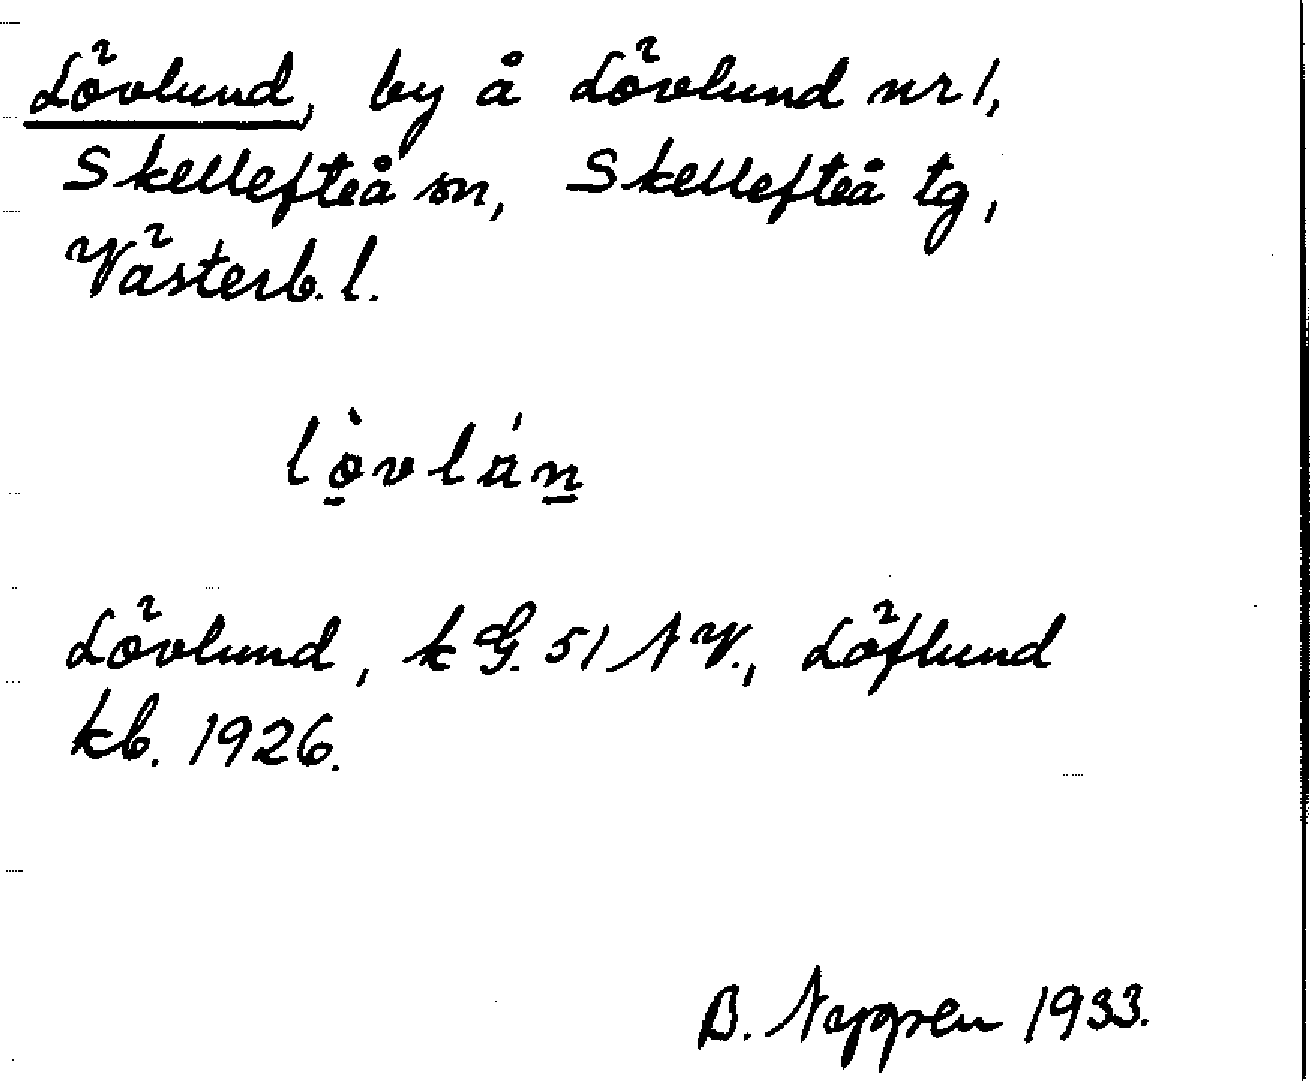 Lövlund, by å Lövlund nr 1,
Skellefteå sn, Skellefteå tg,
Västerb. l.
lò̱vlán̲
Lövlund, k G. 51 N V., Löflund
kb. 1926.
B. Nygren 1933.